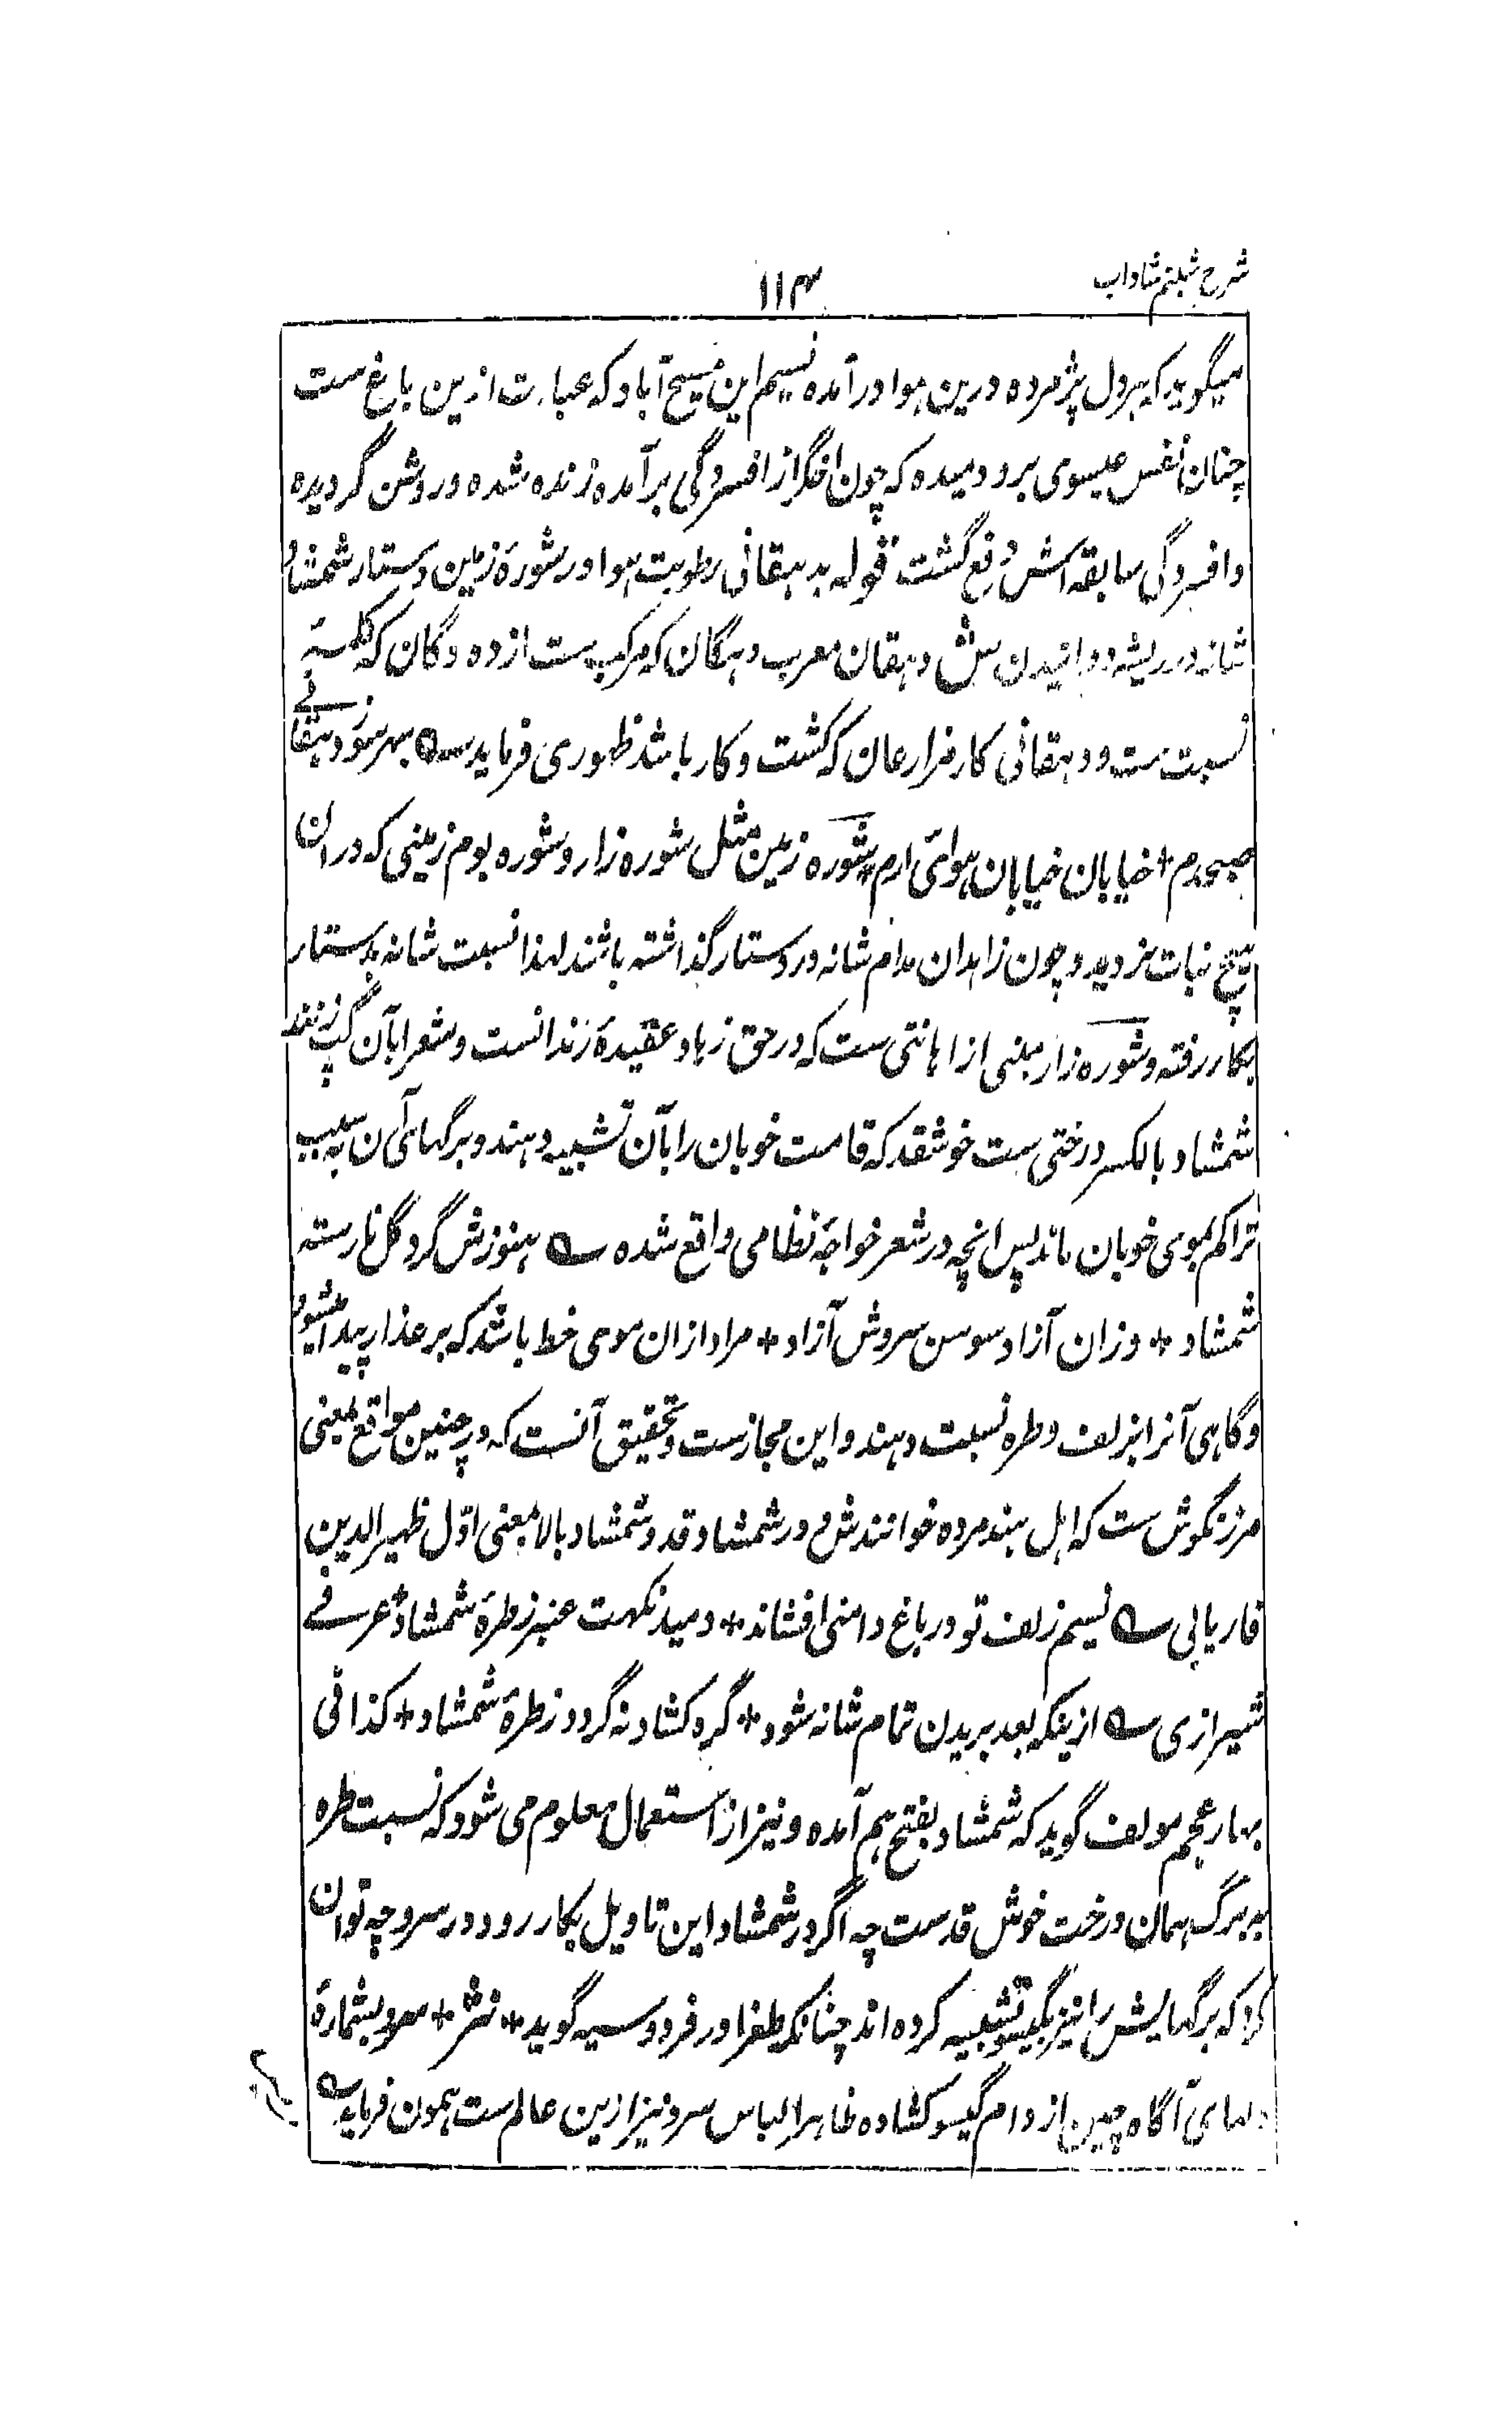 شرح شبنم شاداب
۱۱۴
میگوید که هر دل پژمرده درین هوا در آمده نسیم این مسیح آباد که عبارت ازین باغ ست
چنان نفس عیسوی برو دمیده که چون اخگر از افسردگی برآمده زنده شده و روشن گردیده
و افسردگی سابقه اش رفع گشت قوله بدهقانی رطوبت هوا در شورهٔ زمین دستار شمشاد
شانه در ریشه دوانیدن ش دهقان معرب دهگان که مرکب ست از ده و گان که کلمهٔ
نسبت ست و دهقانی کار مزارعان که کشت و کار باشد ظهوری فرماید ؎ بهر سو ز دهقانی
صبحدم + خیابان خیابان هوای ارم + شوره زمین مثل شوره زار و شوره بوم زمینی که دران
هیچ نبات نروید و چون زاهدان مدام شانه در دستار گذاشته باشند لهذا نسبت شانه بدستار
بکار رفته و شوره زار مبنی از اهانتی ست که در حق زهاد عقیدهٔ رندانست و شعرا بآن گپ زنند
شمشاد بالکسر درختی ست خوشقد که قامت خوبان را بآن تشبیه دهند و برگهای آن به سبب
تراکم بموی خوبان ماند پس انچه در شعر خواجه نظامی واقع شده ؎ هنوزش گرد گل نارسته
شمشاد + وزان آزاد سوسن سروش آزاد + مراد ازان موی خط باشد که بر عذار پیدا میشود
و گاهی آنرا بزلف و طره نسبت دهند و این مجازست و تحقیق آنست که در چنین مواقع بمعنی
مرزنگوش ست که اهل هند مرده خوانندش و در شمشاد قد و شمشاد بالا بمعنی اول ظهیر الدین
فاریابی ؎ نسیم زلف تو در باغ دامنی افشاند + دمید نکهت عنبر ز طرهٔ شمشاد + عرفی
شیرازی ؎ ازینکه بعد بریدن تمام شانه شود + گره کشاد نه گردد ز طرهٔ شمشاد + کذا فی
بهار عجم مولف گوید که شمشاد بفتح هم آمده و نیز از استعمال معلوم می شود که نسبت طره
به برگ همان درخت خوش قدست چه اگر در شمشاد این تاویل بکار رود در سرو چه توان
کرد که برگهایش را نیز بگیسو تشبیه کرده اند چنانکه طغرا در فردوسیه گوید + نثر + سرو بشمارهٔ
دلهای آگاه چیدن از دام گیسو کشاده ظاهرا لباس سرو نیز ازین عالم ست همون فرماید ؎